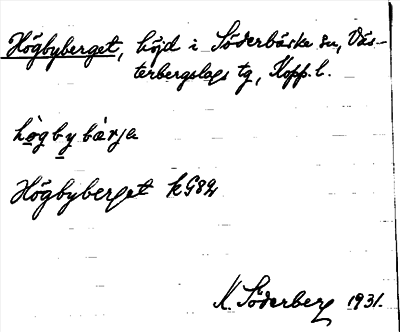 Högbyberget, höjd i Söderbärke sn, Väs-
terbergslags tg, Kopp. l.
högby bærja
Högbyberget
K. Söderberg 1931.